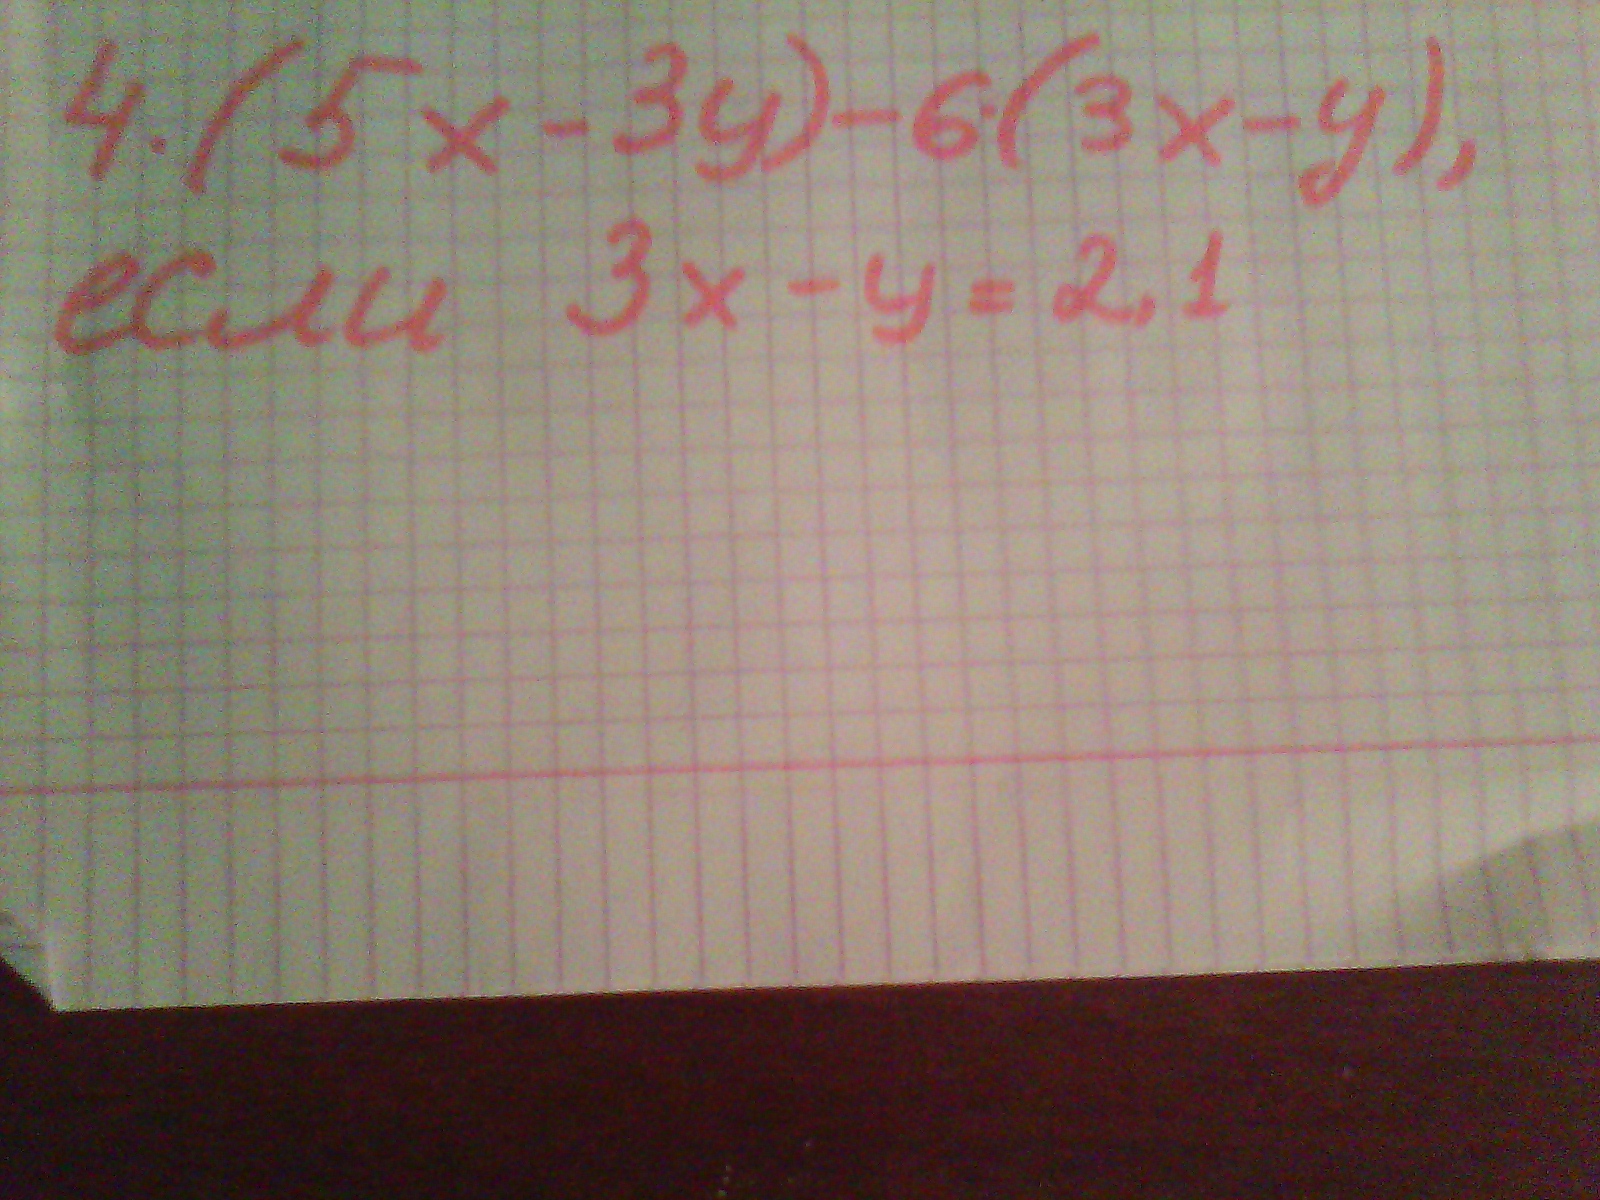 4·(5x-3y)-6·(3x-y),
если 3x-y=2,1